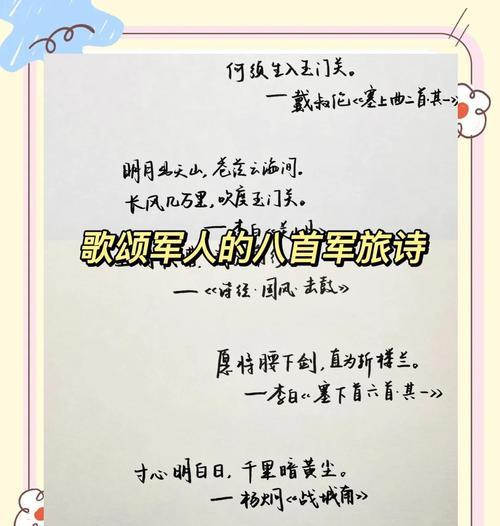 何须生入玉门关。
—戴叔伦《塞上曲二首·其一》
明月出天山,苍茫云海间。
长风几万里,吹度玉门关。
—李白
歌颂军人的八首军旅诗
—《诗经·国风·击鼓》
愿将腰下剑,直为斩楼兰。
—李白《塞下首六首·其一》
寸心明白日,千里暗黄尘。
—杨炯《战城南》